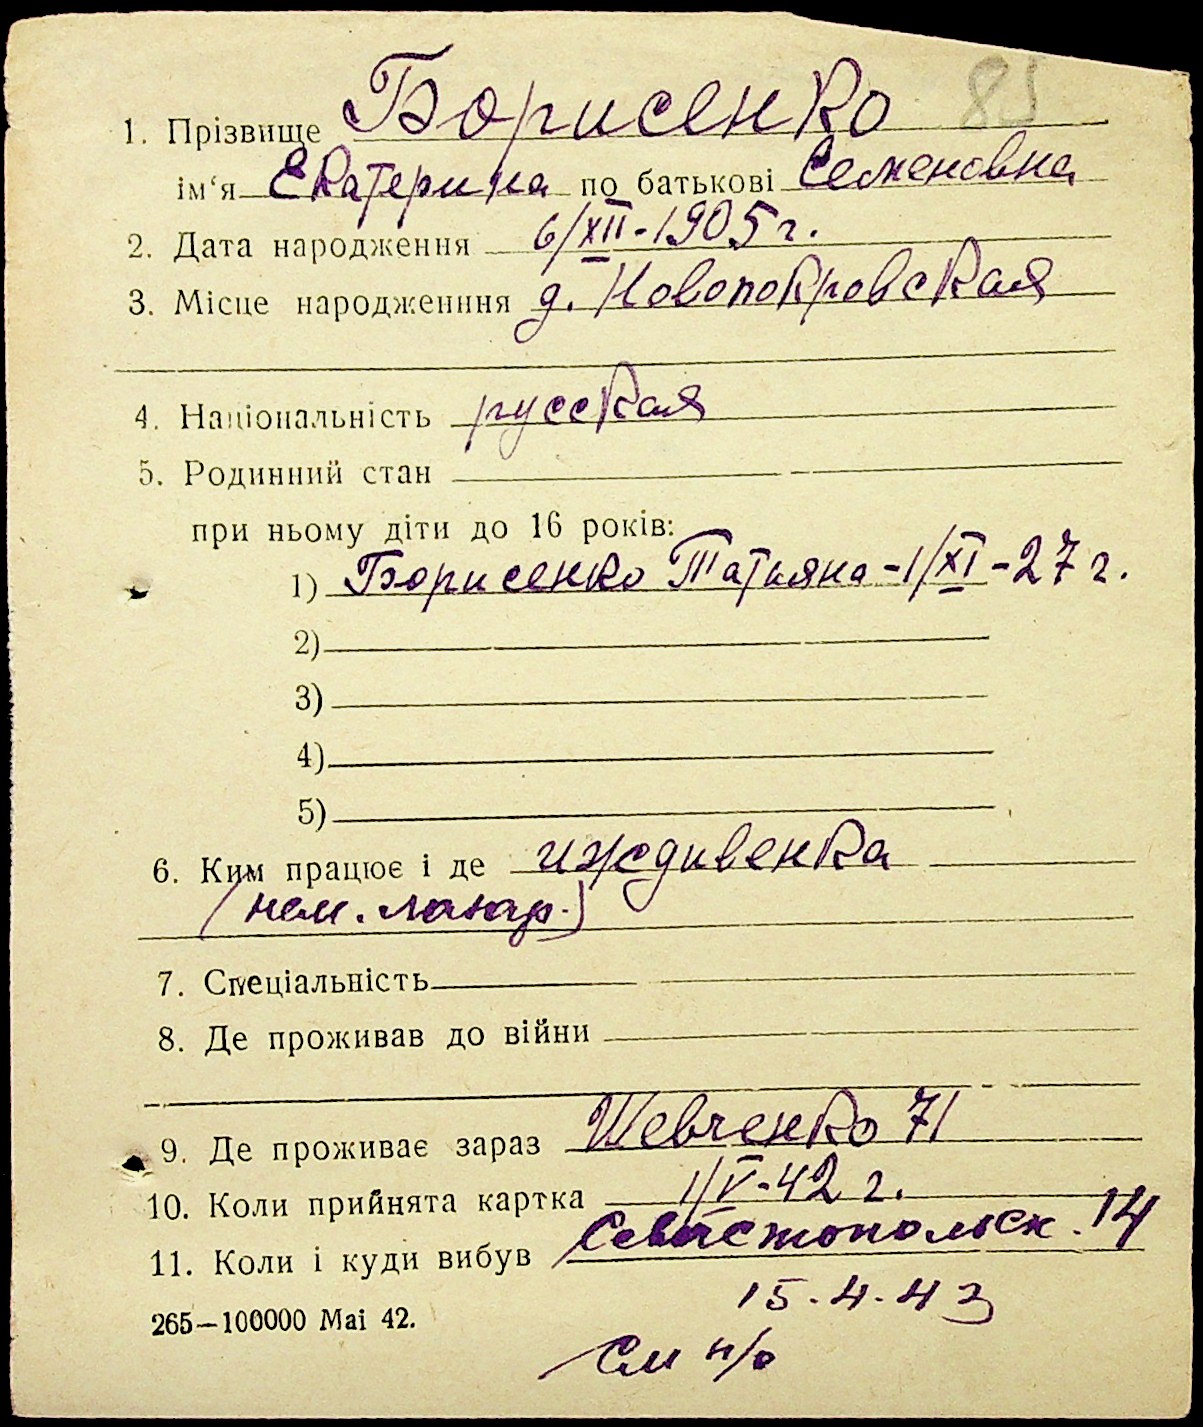 85
1. Прізвище Борисенко
ім‘я Екатерина по батькові Семеновна
2. Дата народження 6/XII-1905 г.
3. Місце народженння д. Новопокровская
4. Національність русская
5. Родинний стан
при ньому діти до 16 років:
1) Борисенко Татьяна - 1/XI-27 г.
2)
3)
4)
5)
6. Ким працює і де иждивенка
(нем. лазар.)
7. Спеціальність
8. Де проживав до війни
9. Де проживає зараз Шевченко 71
10. Коли прийнята картка 1/V-42 г.
11. Коли і куди вибув Севастопольск. 14
15.4.43
265—100000 Mai 42.
См н/о